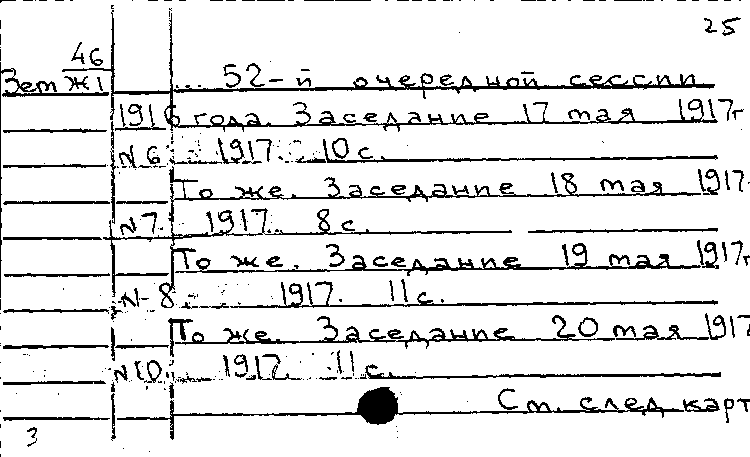 25
46
Зем Ж1 ... 52-й очередной сессии
1916 года. Заседание 17 мая 1917г
N 6 1917. 10 с.
То же. Заседание 18 мая 1917.
N 7. 1917. 8 с.
То же. Заседание 19 мая 1917г
N-8 1917. 11 с.
То же. Заседание 20 мая 1917
N 10. 1917. 11 с.
См. след карт
3